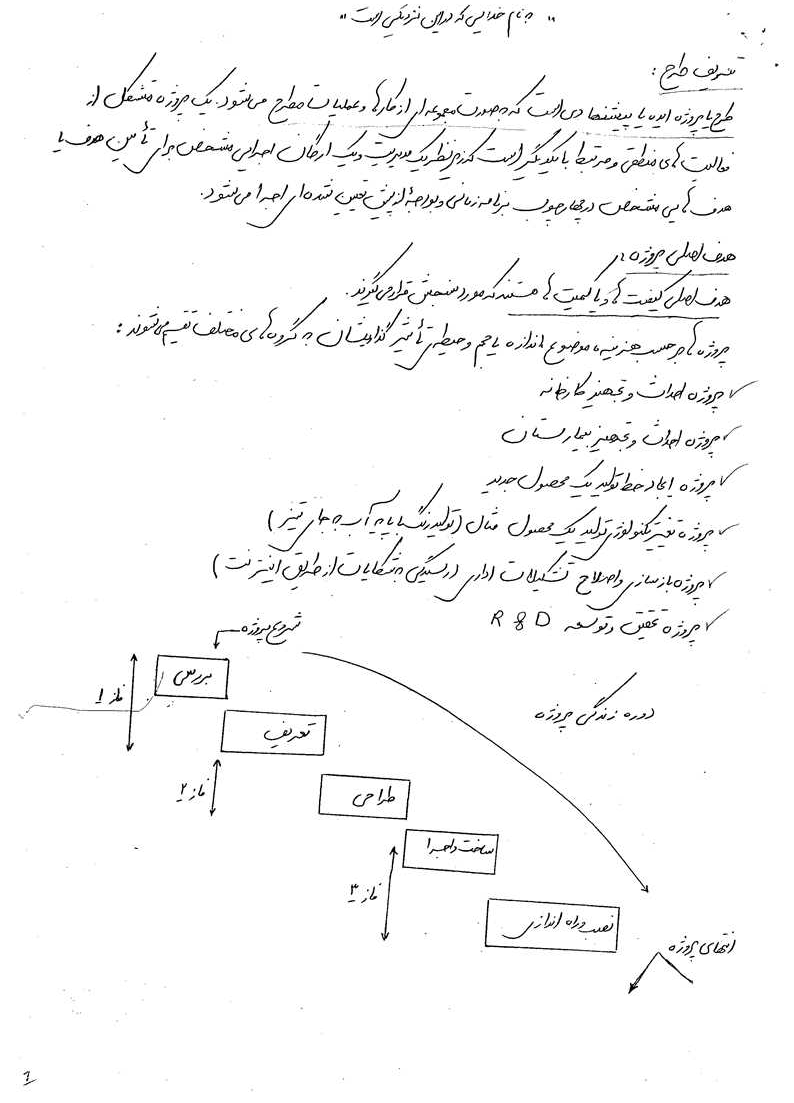 "به نام خدایی که در این نزدیکی است"
تعریف طرح :
طرح یا پروژه ایده یا پیشنهادی است که به صورت مجموعه ای از کارها و عملیات مطرح می شود. یک پروژه متشکل از
فعالیت های منطقی و مرتبط با یکدیگر است که زیر نظر یک مدیریت و یک ارگان اجرایی مشخص برای تأمین هدف یا
هدف هایی مشخص در چهارچوب برنامه زمانی و بودجه از پیش تعیین شده ای اجرا می شود.
هدف اصلی پروژه :
هدف اصلی کیفیت ها و یا کمیت ها هستند که مورد سنجش قرار می گیرند.
پروژه ها بر حسب هزینه، موضوع، اندازه یا حجم و حیطه ی تأثیر گذاریشان به گروه های مختلف تقسیم می شوند :
✓ پروژه احداث و تجهیز کارخانه
✓ پروژه احداث و تجهیز بیمارستان
✓ پروژه ایجاد خط تولید یک محصول جدید
✓ پروژه تغییر تکنولوژی تولید یک محصول مثال (تولید رنگ با پایه آب به جای تینر)
✓ پروژه بازسازی و اصلاح تشکیلات اداری (رسیدگی به شکایات از طریق اینترنت)
✓ پروژه تحقیق و توسعه R & D
شروع پروژه
بررسی
فاز ۱
دوره زندگی پروژه
تعریف
فاز ۲
طراحی
ساخت و اجرا
فاز ۳
نصب و راه اندازی
انتهای پروژه
1